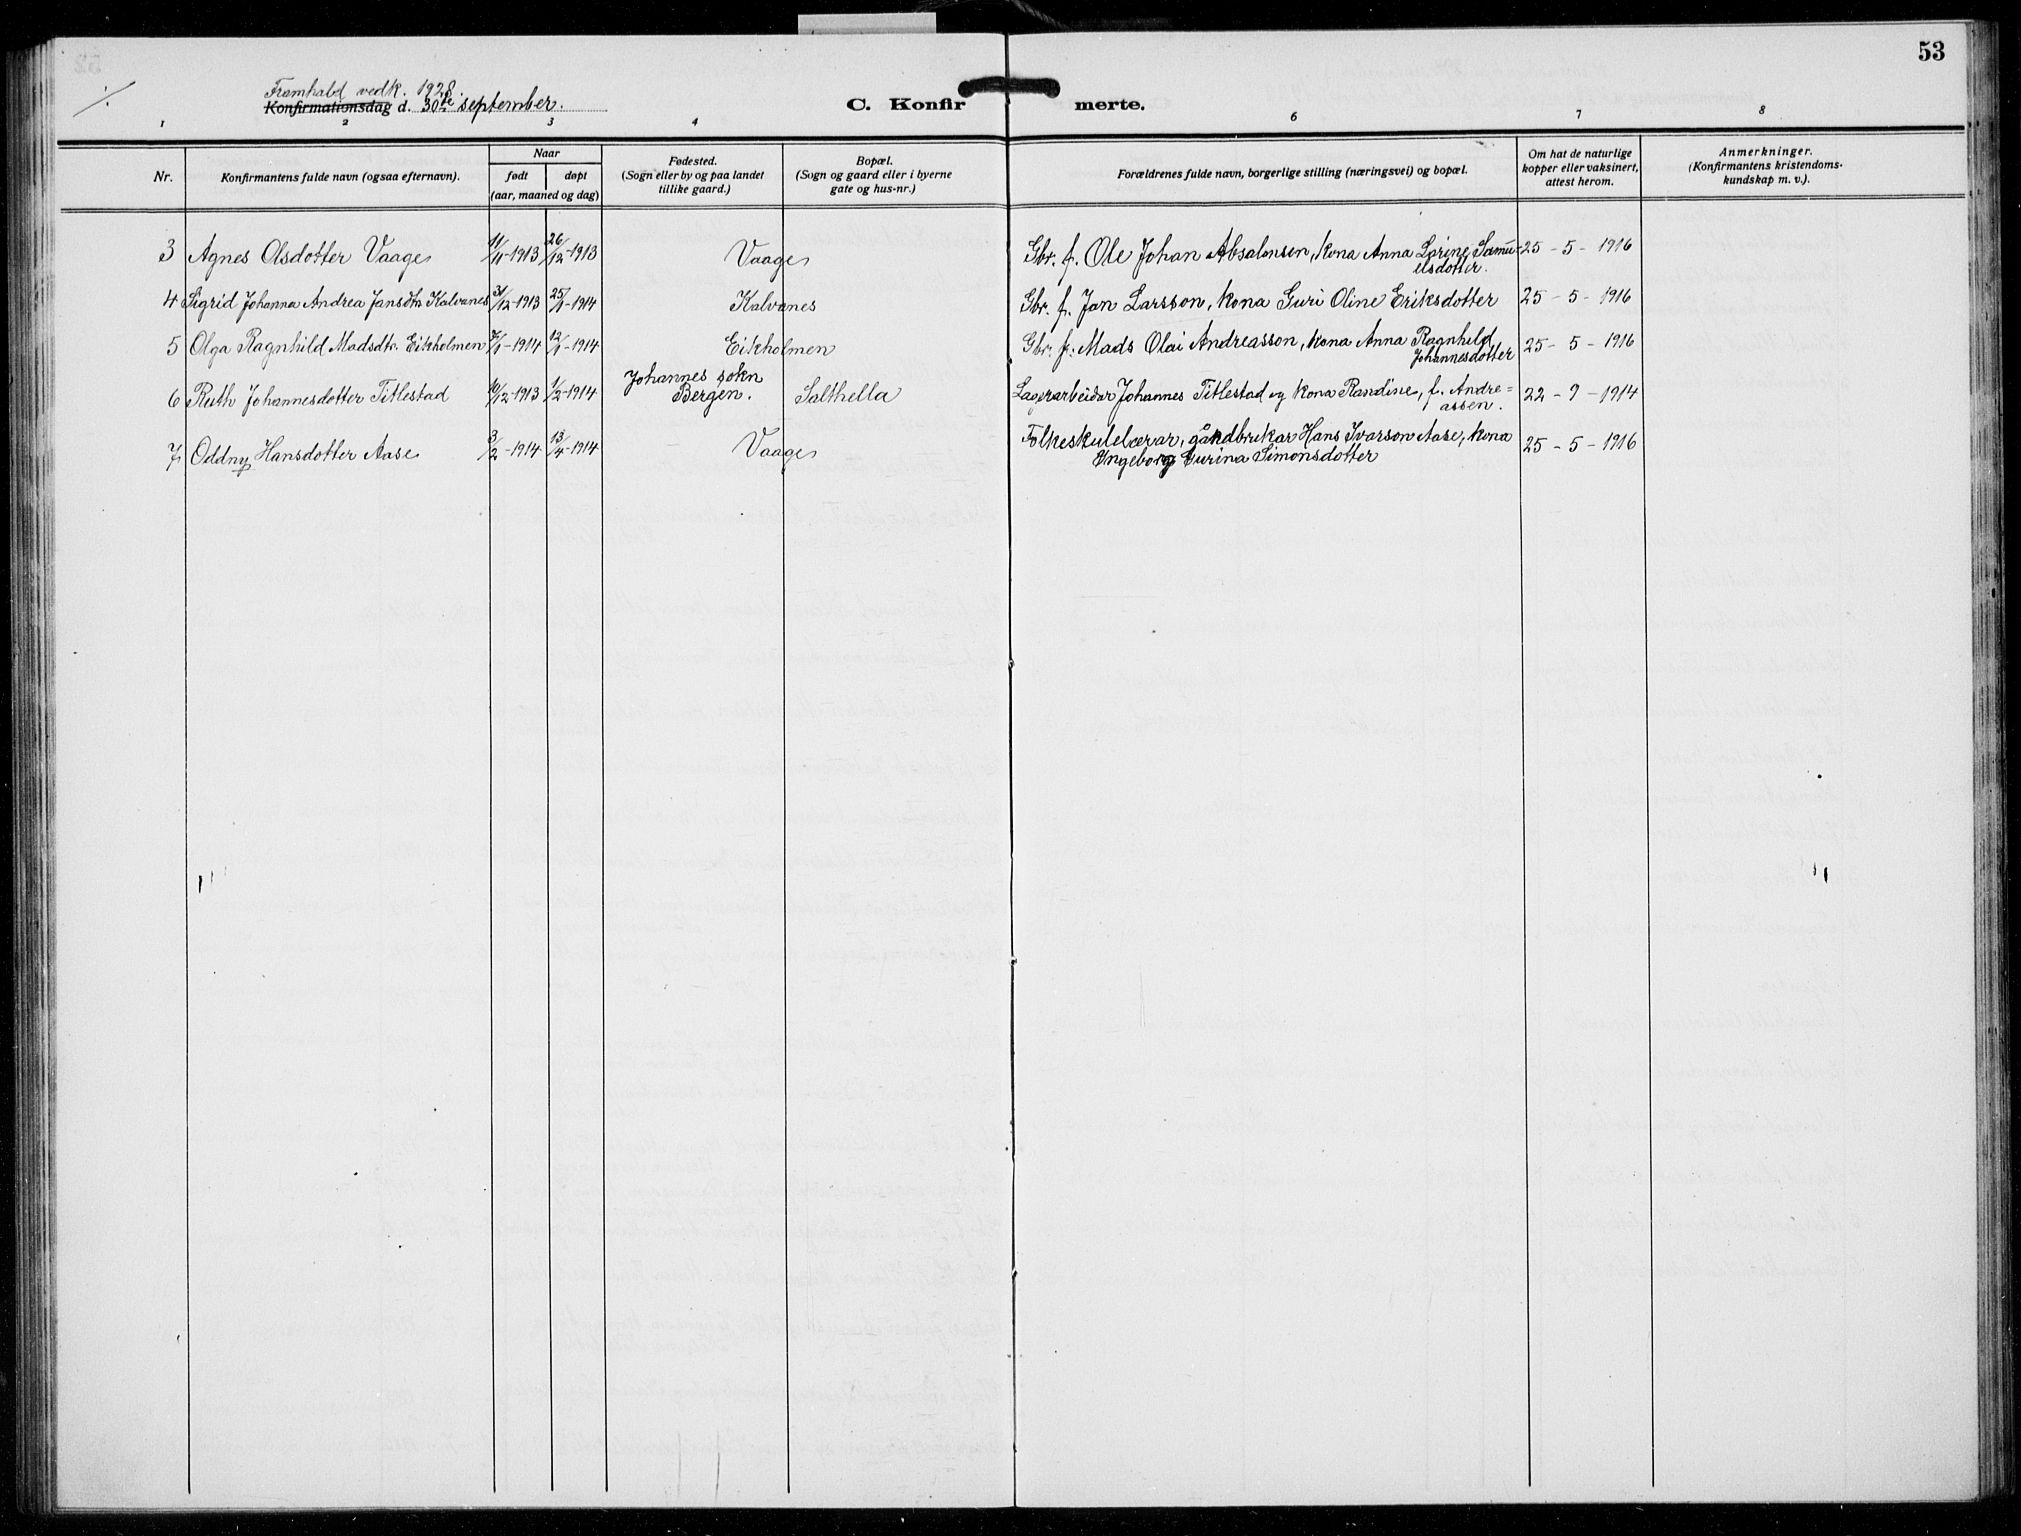 53
Framhald vedk. 1928.
Konfirmationsdag d. 30te september.
C. Konfir merte.
1 2 3 4 6 7 8
Nr.
Konfirmantens fulde navn (ogsaa efternavn).
Naar
født døpt
(aar, maaned og dag)
Fødested.
(Sogn eller by og paa landet
tillike gaard.)
Bopæl.
(Sogn og gaard eller i byerne
gate og hus-nr.)
Forældrenes fulde navn, borgerlige stilling (næringsvei) og bopæl.
Om hat de naturlige
kopper eller vaksinert,
attest herom.
Anmerkninger.
(Konfirmantens kristendoms-
kundskap m. v.).
3 Agnes Olsdotter Vaage 11/11-1913 26/12-1913 Vaage Gbr. f. Ole Johan Absalonsen, kona Anna Lorine Samu- 25-5-1916
elsdotter.
4 Sigrid Johanna Andrea Jansdtr. Kalvanes 31/12-1913 25/1-1914 Kalvanes Gbr. f. Jan Larsson, kona Guri Oline Eriksdotter 25-5-1916
5 Olga Ragnhild Madsdtr. Eikholmen 7/1-1914 12/1-1914 Eikholmen Gbr. f. Mads Olai Andreasson, kona Anna Ragnhild 25-5-1916
Johannesdotter
6 Ruth Johannesdotter Titlestad 10/12-1913 1/2-1914 Johannes sokn
Bergen. Salthella Lagerarbeidar Johannes Titlestad og kona Randine, f. Andre= 22-9-1914
assen.
7 Oddny Hansdotter Aase 3/2-1914 13/4-1914 Vaage Folkeskulelærar, gardbrukar Hans Ivarson Aase, kona 25-5-1916
Ingeborg Gurina Simonsdotter